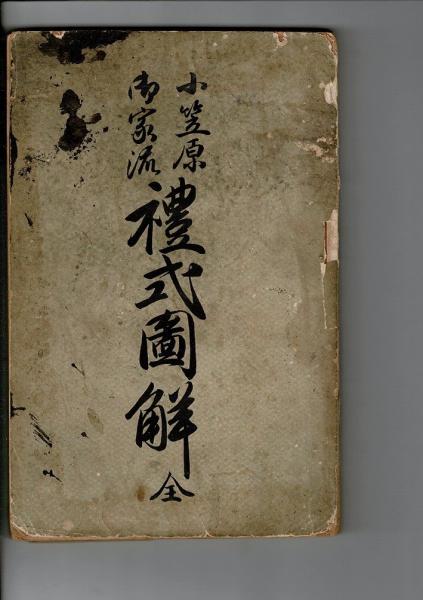 小笠原
御家流
禮式圖解
全